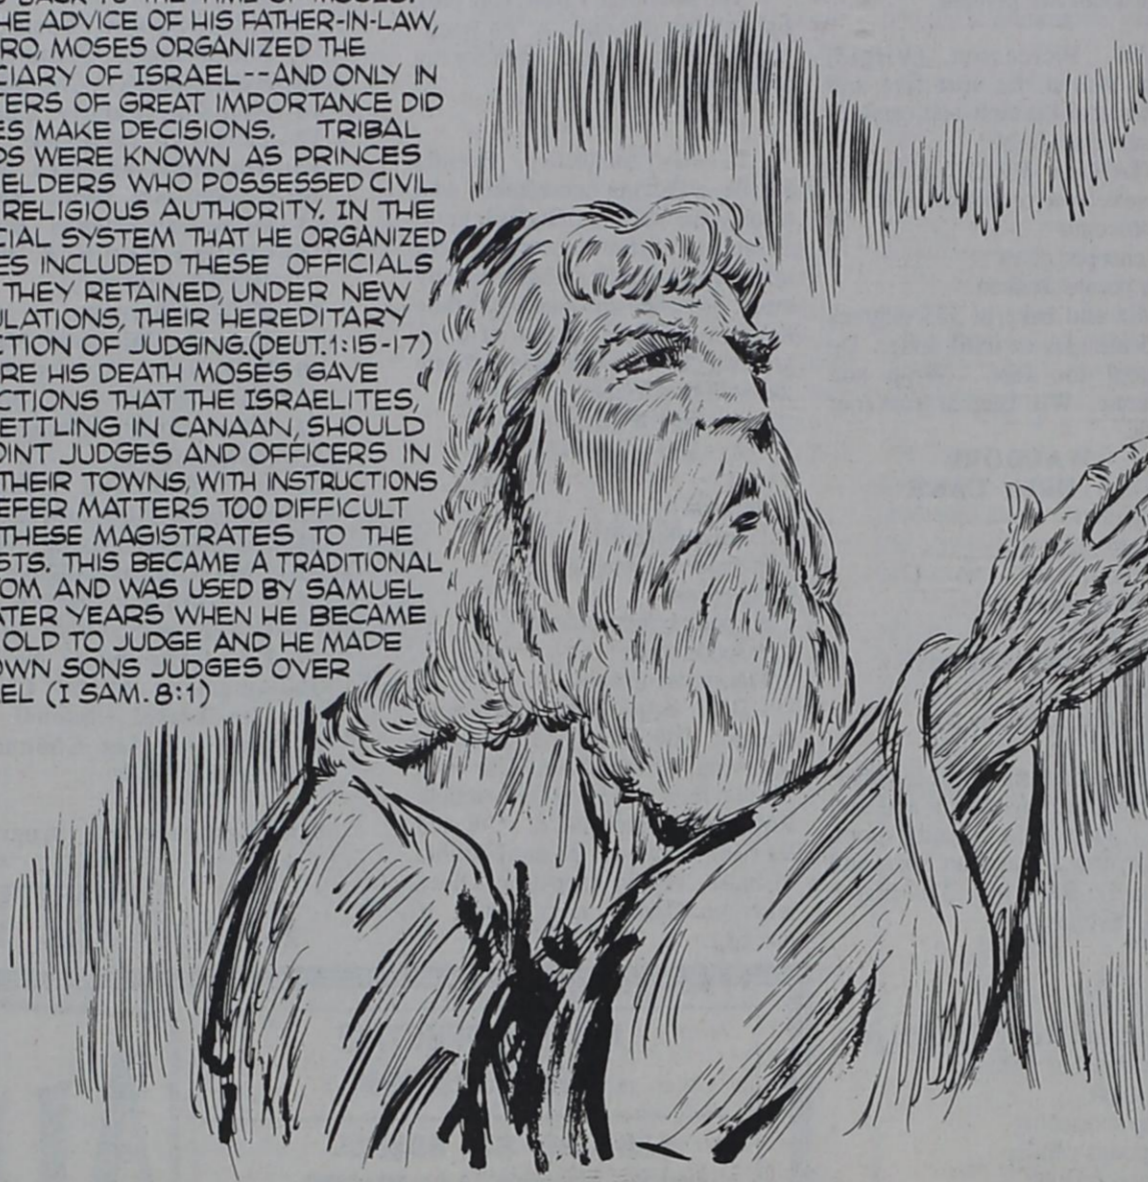 BACK TO THE TIME OF MOSES.
HE ADVICE OF HIS FATHER-IN-LAW,
RO, MOSES ORGANIZED THE
CIARY OF ISRAEL--AND ONLY IN
TERS OF GREAT IMPORTANCE DID
ES MAKE DECISIONS. TRIBAL
DS WERE KNOWN AS PRINCES
ELDERS WHO POSSESSED CIVIL
RELIGIOUS AUTHORITY. IN THE
CIAL SYSTEM THAT HE ORGANIZED
ES INCLUDED THESE OFFICIALS
THEY RETAINED, UNDER NEW
ULATIONS, THEIR HEREDITARY
CTION OF JUDGING.(DEUT.1:15-17)
RE HIS DEATH MOSES GAVE
CTIONS THAT THE ISRAELITES,
ETTLING IN CANAAN, SHOULD
OINT JUDGES AND OFFICERS IN
THEIR TOWNS, WITH INSTRUCTIONS
EFER MATTERS TOO DIFFICULT
THESE MAGISTRATES TO THE
STS. THIS BECAME A TRADITIONAL
OM AND WAS USED BY SAMUEL
ATER YEARS WHEN HE BECAME
OLD TO JUDGE AND HE MADE
OWN SONS JUDGES OVER
EL (I SAM. 8:1)